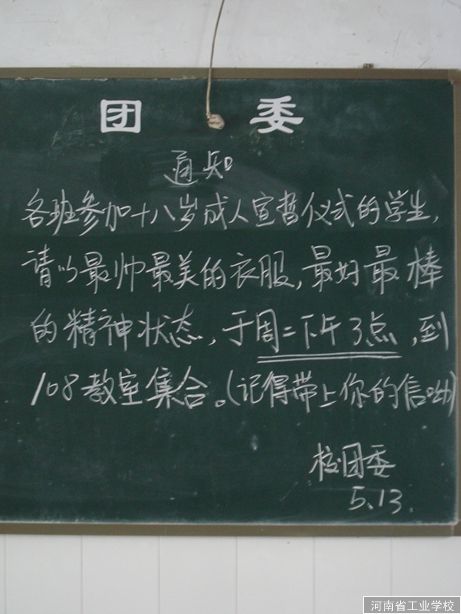 团委
通知
各班参加十八岁成人宣誓仪式的学生,
请以最帅最美的衣服,最好最棒
的精神状态,于周二下午3点,到
108教室集合。(记得带上你的信呦)
校团委
5.13.
河南省工业学校